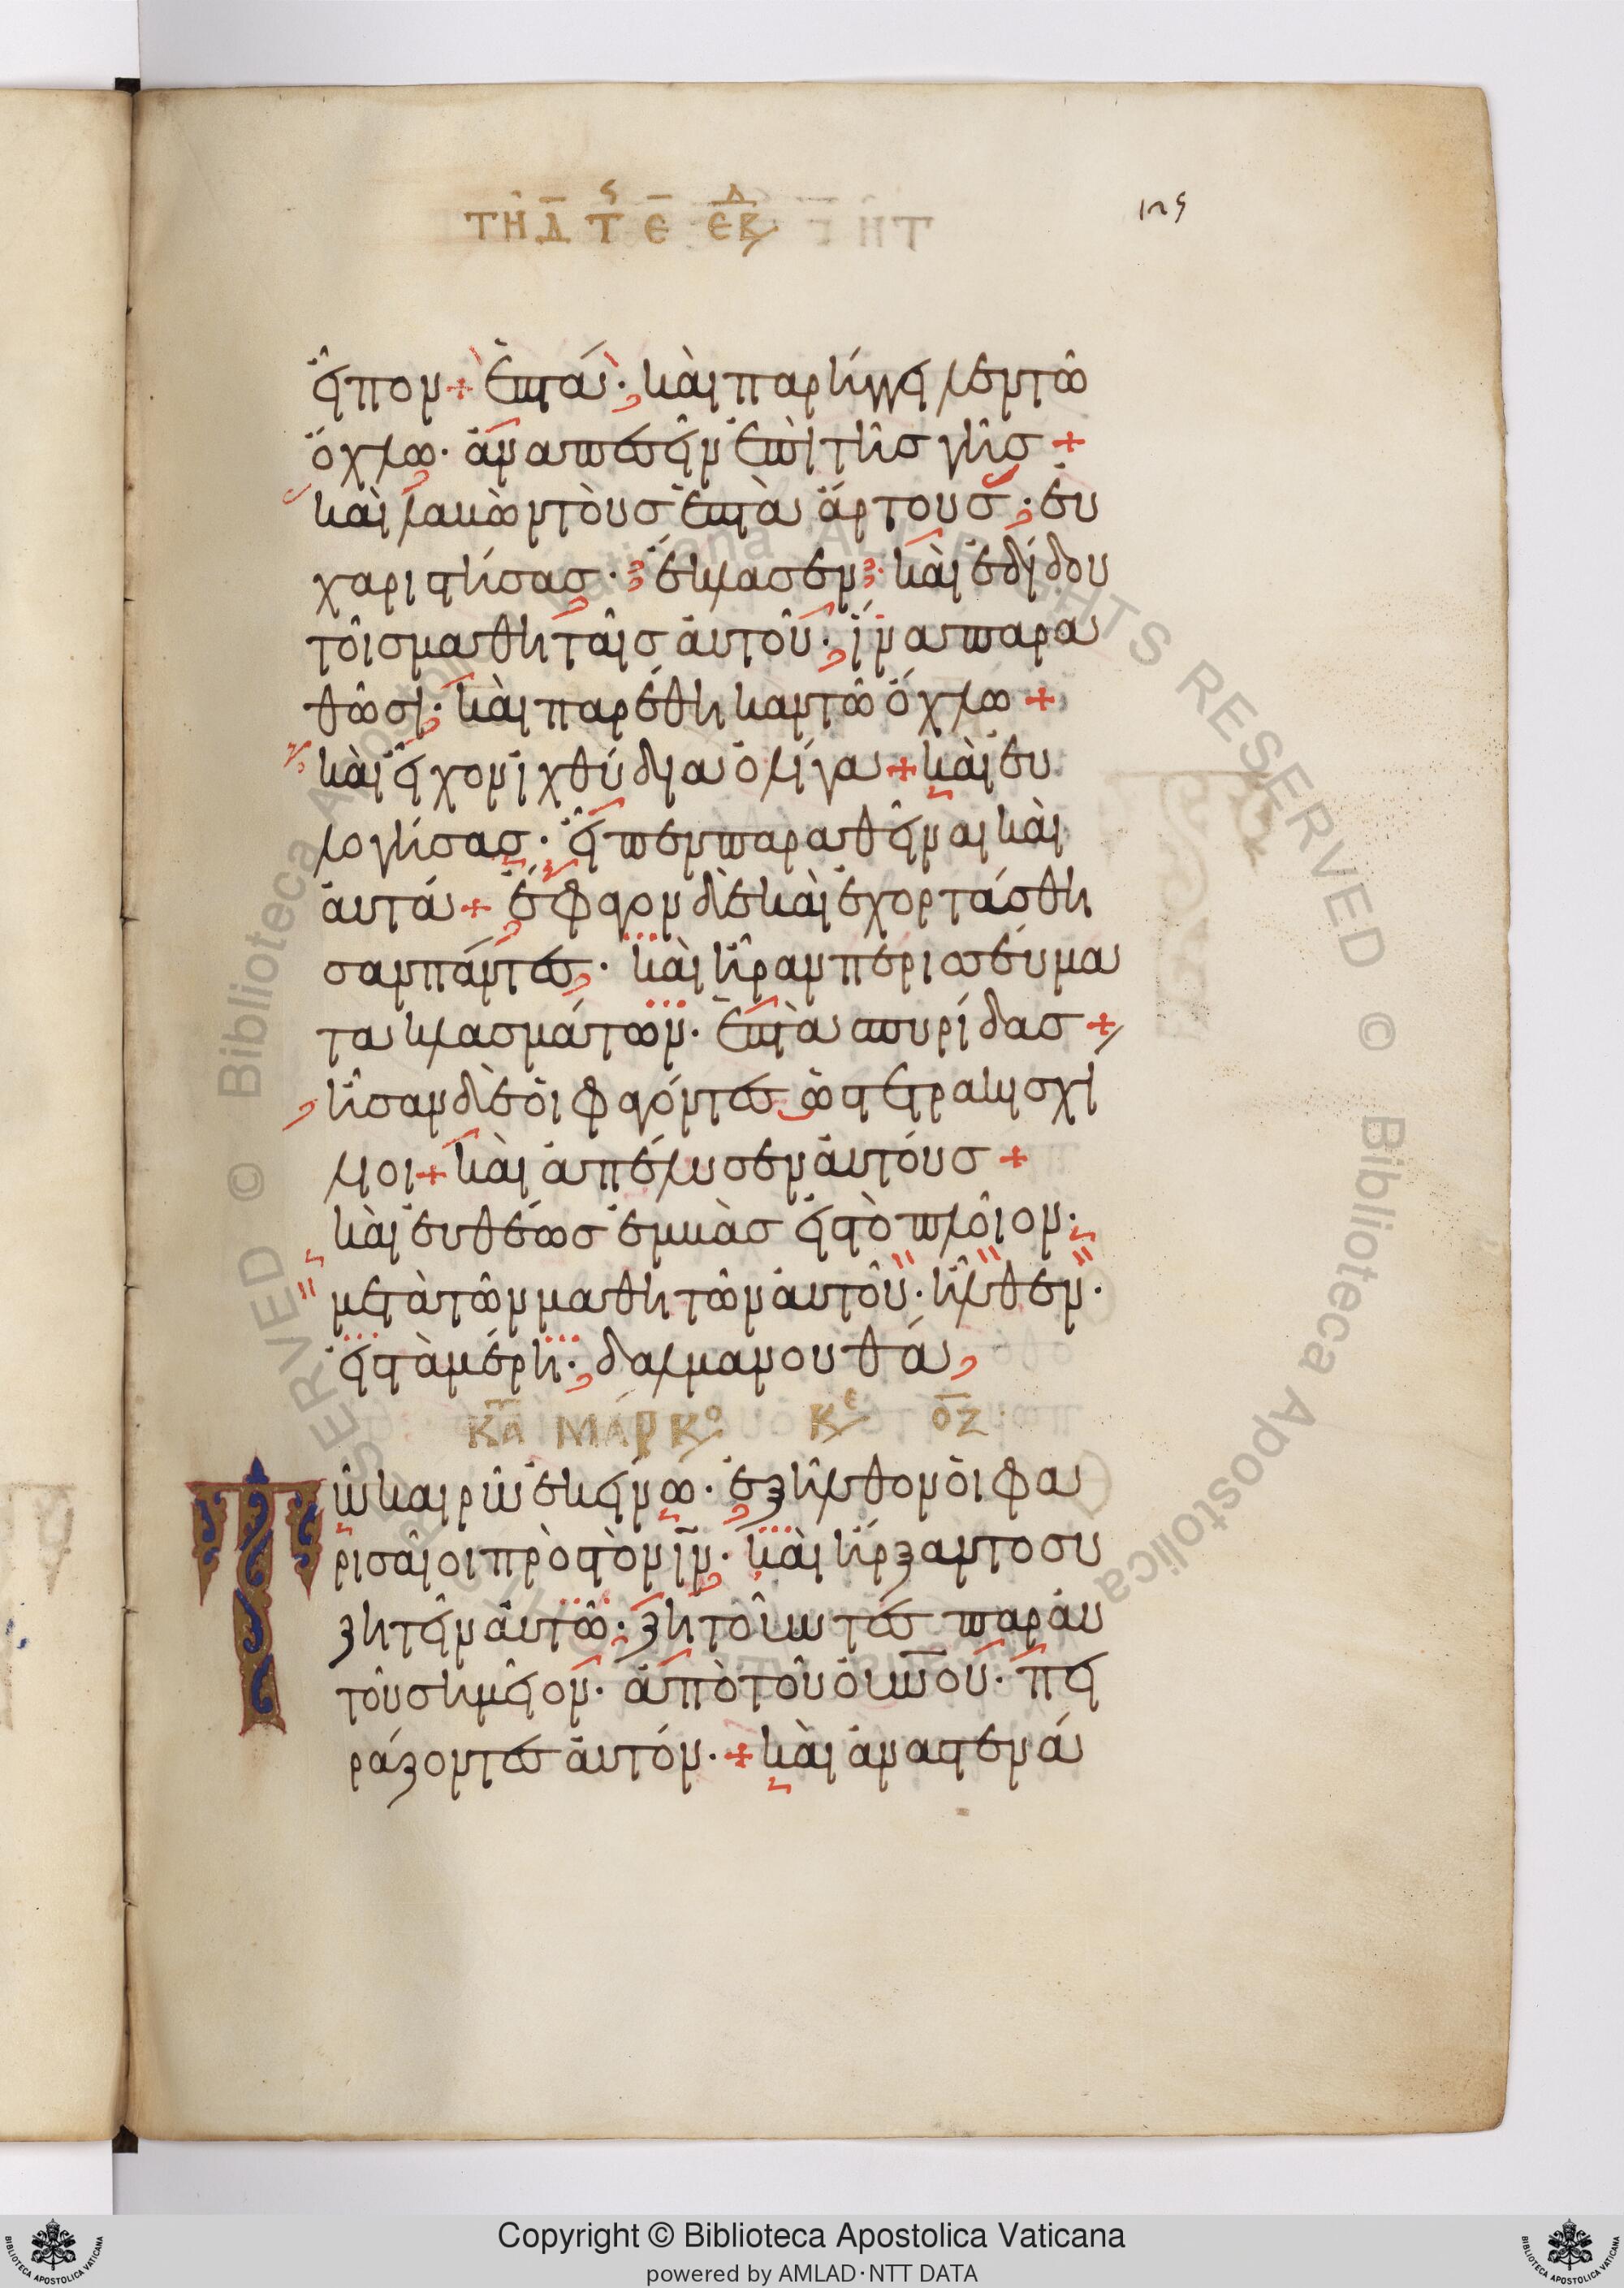 ΤΗ Δ Τ ς Ε ΕΒΔ
ρκς
εἶπον + ἑπτά · καὶ παρήγγειλεν τῶ
ὄχλω · ἀναπεσεῖν ἐπὶ τῆσ γῆσ +
καὶ λαβὼν τοὺσ ἑπτὰ ἄρτουσ · ευ
χαριστήσασ · ἔκλασεν · καὶ ἐδίδου
τοῖσ μαθηταῖσ ἀυτοῦ · ἵνα παρα
θῶσι · καὶ παρέθηκαν τῶ ὄχλω +
καὶ εἶχον ἰχθύδια ὀλίγα + καὶ ευ
λογήσασ · εἶπεν παραθεῖναι καὶ
ἀυτά + ἔφαγον δὲ καὶ ἐχορτάσθη
σαν πάντεσ · καὶ ἦραν περισσέυμα
τα κλασμάτων · ἑπτὰ σπυρίδασ +
ἦσαν δὲ ὁι φαγόντεσ ὡσ τετρακισχί
λιοι + καὶ ἀπέλυσεν ἀυτόυσ +
καὶ ἐυθέωσ ἐμβὰσ εἰσ τὸ πλοῖον ·
μετὰ τῶν μαθητῶν ἀυτοῦ · ἦλθεν ·
εἰσ τὰ μέρη · δαλμανουθά
ΚΑΤΑ ΜΑΡΚΟ ΚΕ ΟΖ
Τῶ καιρῶ ἐκείνω · ἐξῆλθον ὁι φα
ρισαῖοι πρὸσ τὸν ΙΝ · καὶ ἤρξαντο συ
ζητεῖν ἀυτῶ · ζητοῦντεσ παρ ἀυ
τοῦ σημεῖον · ἀπὸ τοῦ ὀυνοῦ · πει
ράζοντεσ ἀυτόν · + καὶ ἀναστενά
Copyright © Biblioteca Apostolica Vaticana
powered by AMLAD·NTT DATA